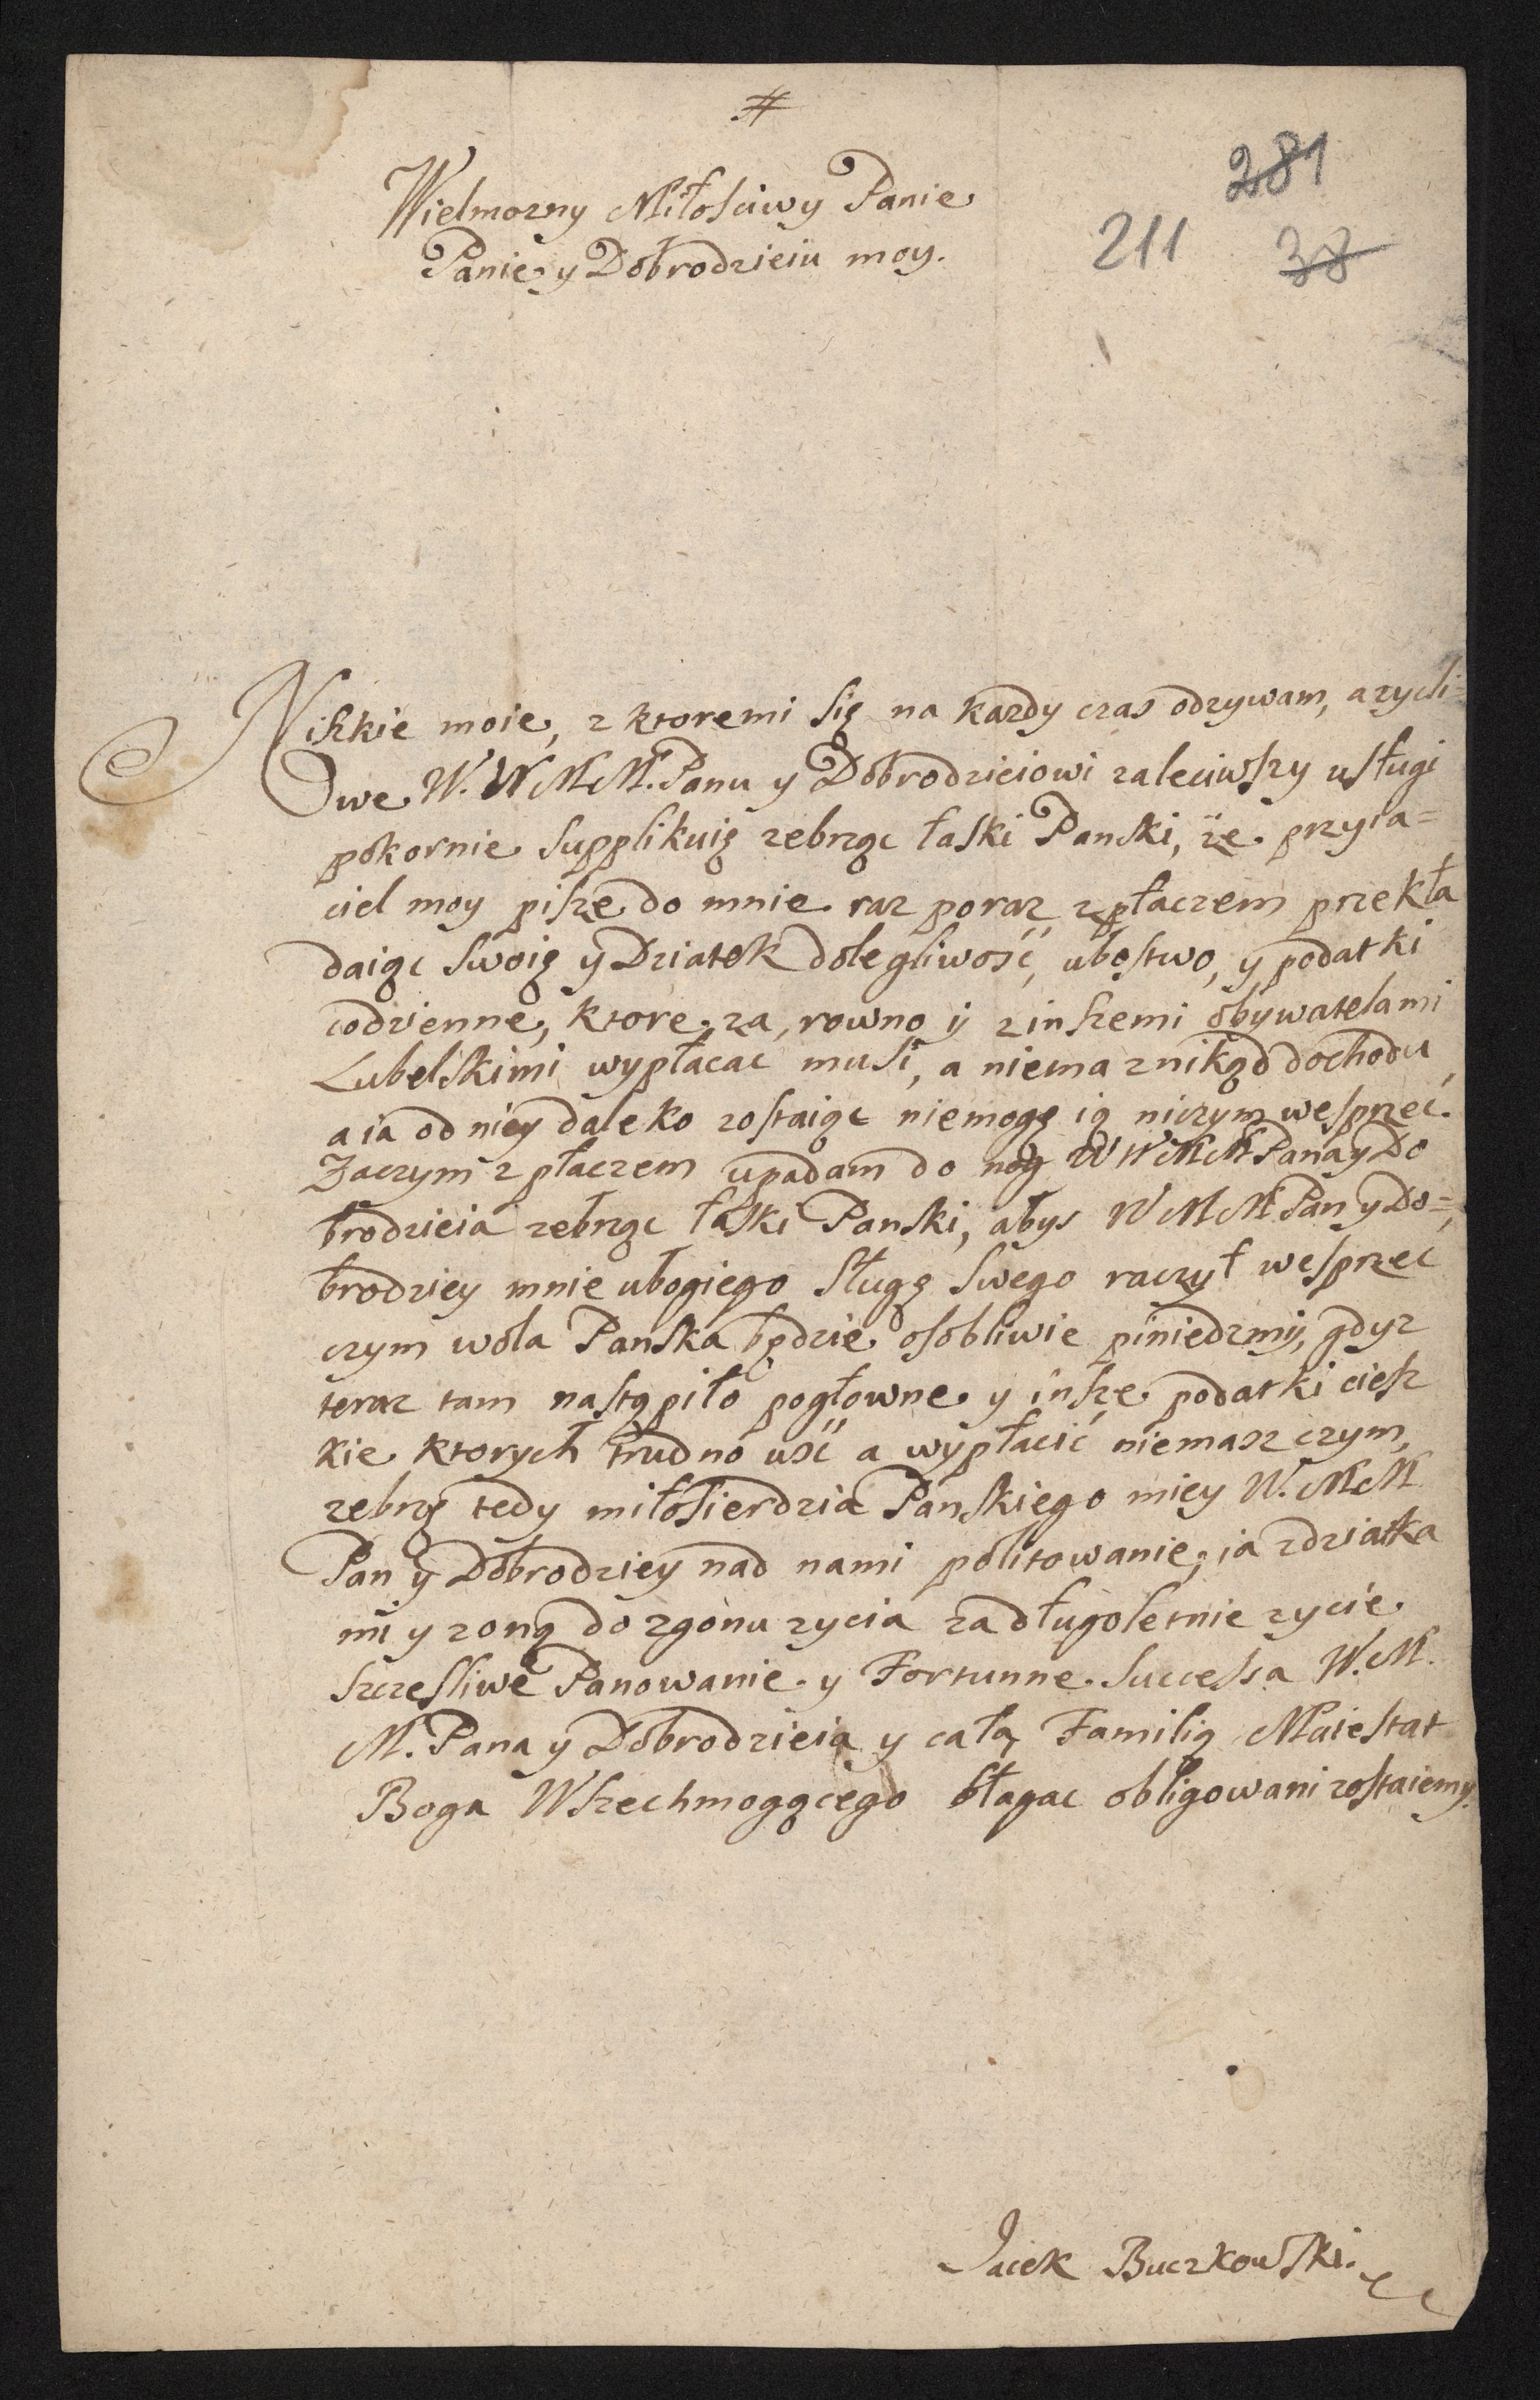 #
281
Wielmozny Miłosciwy Panie
211 38
Panie y Dobrodzieiu moy.
Niskie moie, z ktoremi się na kazdy czas odzywam, a zycli=
we W. W M M. Panu y Dobrodzieiowi zaleciwszy usługi
pokornie supplikuię zebrząc łaski Panski, że przyia=
ciel moy pisze do mnie raz poraz z płaczem przekła
daiąc swoię y Dziatek dolegliwość, ubostwo, y podatki
codzienne, ktore za, rowno ij z inszemi obywatelami
Lubelskimi wypłacac musi, a niema znikąd dochodu
a ia od niey daleko zostaiąc niemogę ią niczym wesprzeć.
Zaczym z płaczem upadam do nog W W M M Pana y Do
brodzieia zebrząc łaski Panski, abys W M M Pan y Do=
brodziey mnie ubogiego sługę swego raczył wesprzec
czym wola Panska będzie osobliwie piniedzmij, gdyz
teraz tam nastąpiło pogłowne y insze podatki ciesz
kie ktorych trudno uść a wypłacić niemasz czym,
zebrzę tedy miłosierdzia Panskiego miey W. M M
Pan y Dobrodziey nad nami politowanie, ia z dziatka
mi y zoną do zgonu zycia za długoletnie zycie
szczesliwe Panowanie y Fortunne Successa W. M.
M. Pana y Dobrodzieia y całą Familią Maiestat
Boga Wszechmogącego błagac obligowani zostaiemy.
Jacek Buczkowski.